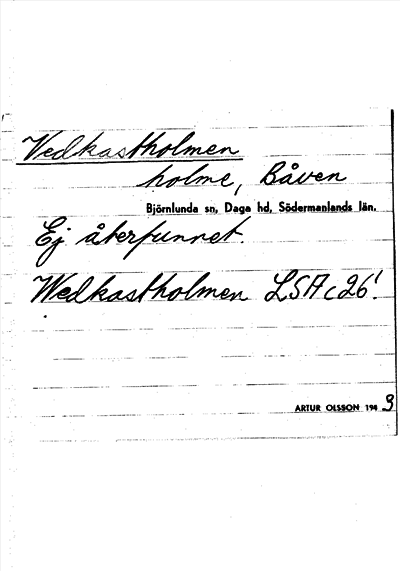 Vedkastholmen
holme, Båven
Björnlunda sn, Daga hd, Södermanlands län.
Ej återfunnet.
Wedkastholmen LSA c26¹.
ARTUR OLSSON 1943